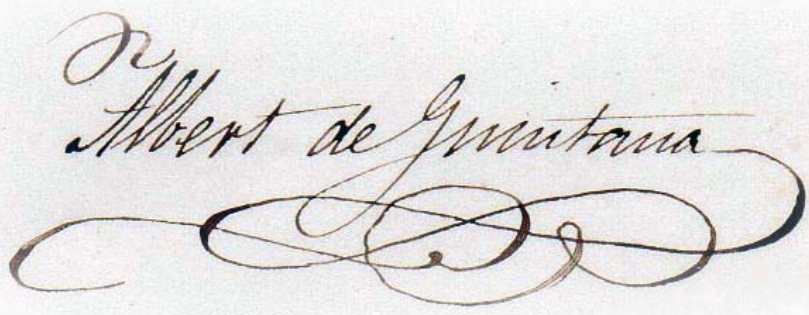 Albert de Quintana